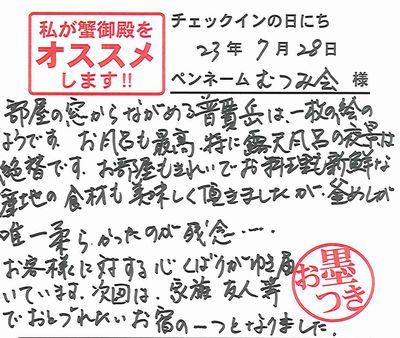 私が蟹御殿を
オススメ
します!!
チェックインの日にち
23年7月28日
ペンネーム むつみ会 様
部屋の窓からながめる普賢岳は、一枚の絵の
ようです。お風呂も最高、特に露天風呂の夜景は
絶替です。お部屋もきれいでお料理も新鮮な
産地の食材も美味しく頂きましたが、釜めしが
唯一柔らかったのが残念……
お客様に対する心くばりがゆき届
いています。次回は、家族友人等
でおとづれたいお宿の一つとなりました。
お墨つき